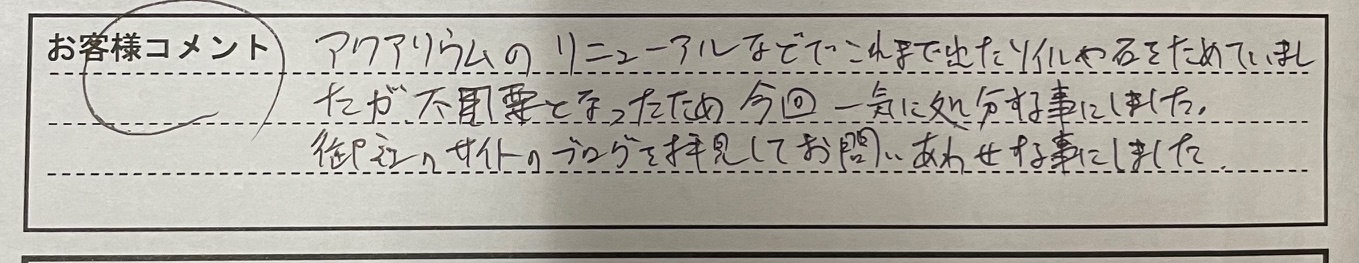 お客様コメント アクアリウムのリニューアルなどでこれまで出たソイルや石をためていまし
たが不用要となったため今回一気に処分する事にしました。
御社のサイトのブログを拝見してお問いあわせする事にしました。